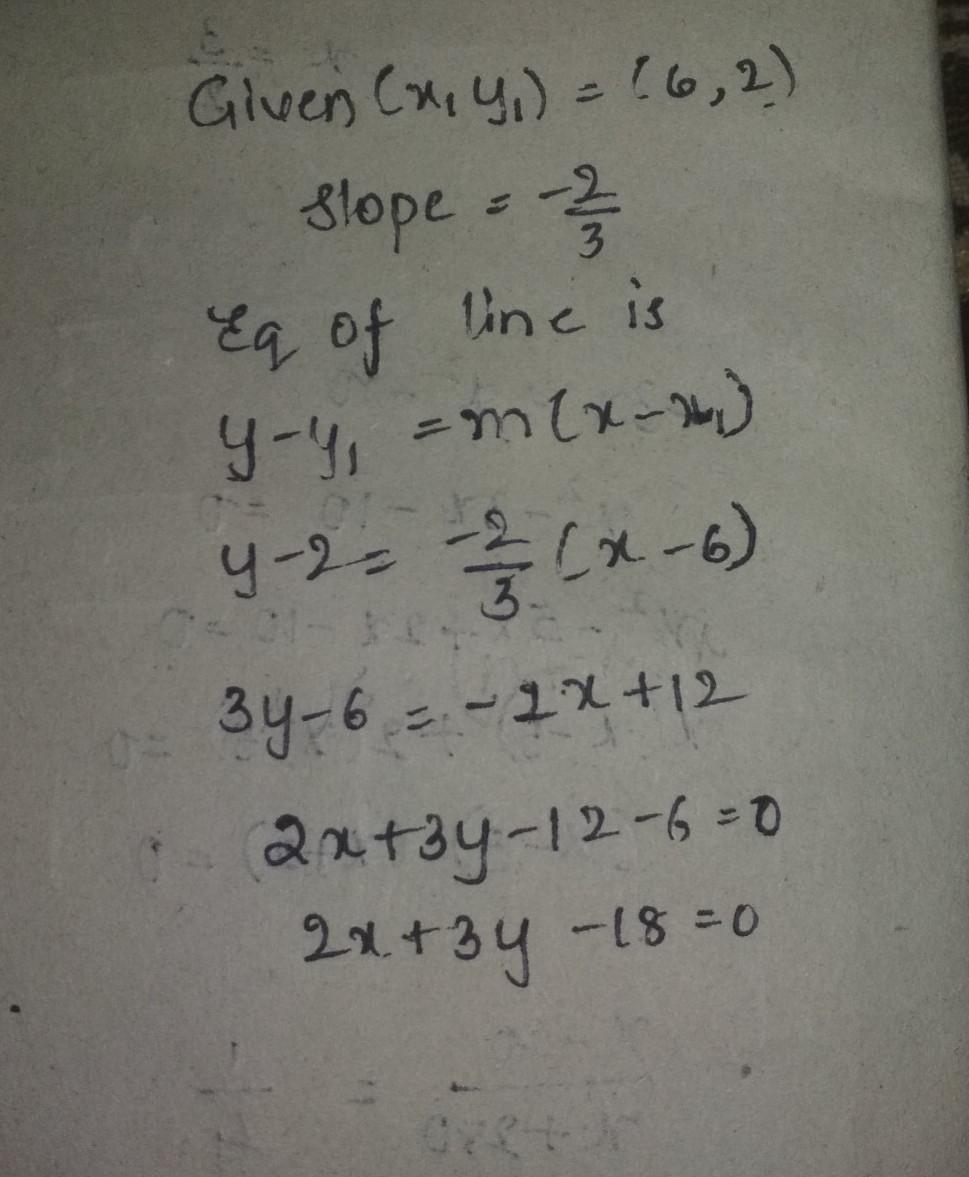 Given (x₁ y₁) = (6,2)
slope = -2/3
Eq of line is
y-y₁ = m(x-x₁)
y-2 = -2/3 (x-6)
3y-6 = -2x+12
2x+3y-12-6=0
2x+3y-18=0